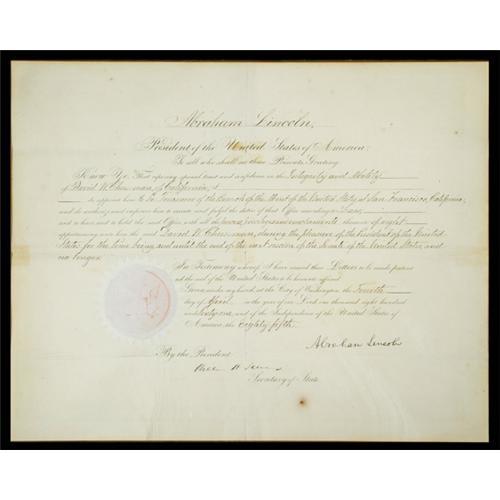 Abraham Lincoln,
President of the United States of America:
To all who shall see these Presents, Greeting:
Know Ye, That reposing special trust and confidence in the Integrity and Ability
of David W. Cheesman, of California, I
do appoint him to be Treasurer of the Branch of the Mint of the United States, at San Francisco, California;
and do authorize and empower him to execute and fulfil the duties of that Office according to Law;
and to have and to hold the said Office, with all the powers, privileges and emoluments thereunto of right
appertaining unto him the said David W. Cheesman, during the pleasure of the President of the United
States for the time being, and until the end of the next session of the Senate of the United States, and
no longer.
In Testimony whereof I have caused these Letters to be made patent
and the seal of the United States to be hereunto affixed.
Given under my hand, at the City of Washington, the Fourth
day of in the year of our Lord one thousand eight hundred
and sixty one, and of the Independence of the United States of
America, the eighty fifth.
Abraham Lincoln
By the President
Secretary of State.